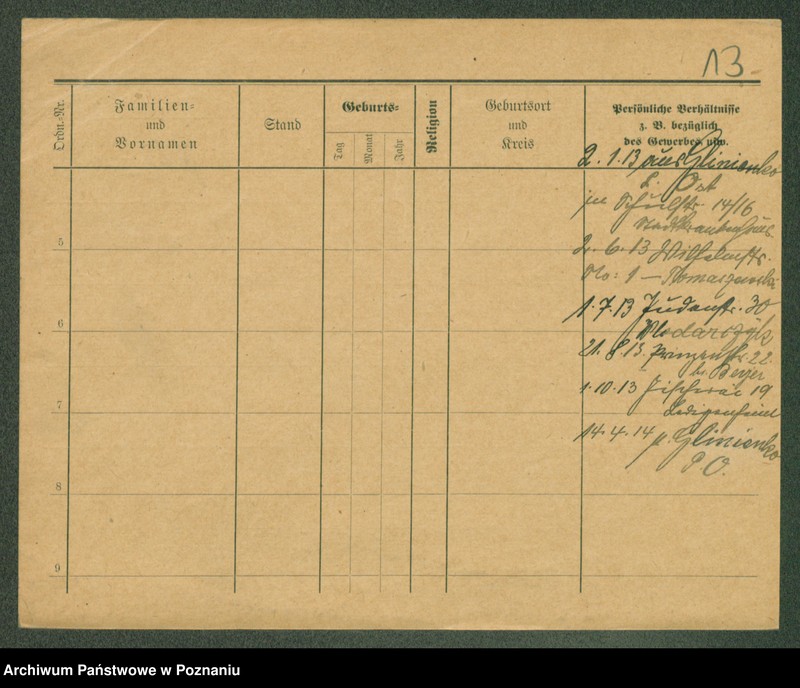 13
Ordn.-Nr.
Familien-
und
Vornamen
Stand
Geburts-
Tag
Monat
Jahr
Religion
Geburtsort
und
Kreis
Persönliche Verhältnisse
z. B. bezüglich
des Gewerbes usw.
2. 1. 13 aus Glinienko
Kr. Ost
in Schulstr. 14/16
Stadtkrankenhaus
2. 6. 13 Wilhelmstr.
No: 1 —
1. 7. 13 Judenstr. 30
Wlodarczyk
21. 8. 13. 22
b. Beyer
1. 10. 13 Fischerei 19
Ledigenheim
14. 4. 14 n. Glinienko
P. O.
5
6
7
8
9
Archiwum Państwowe w Poznaniu